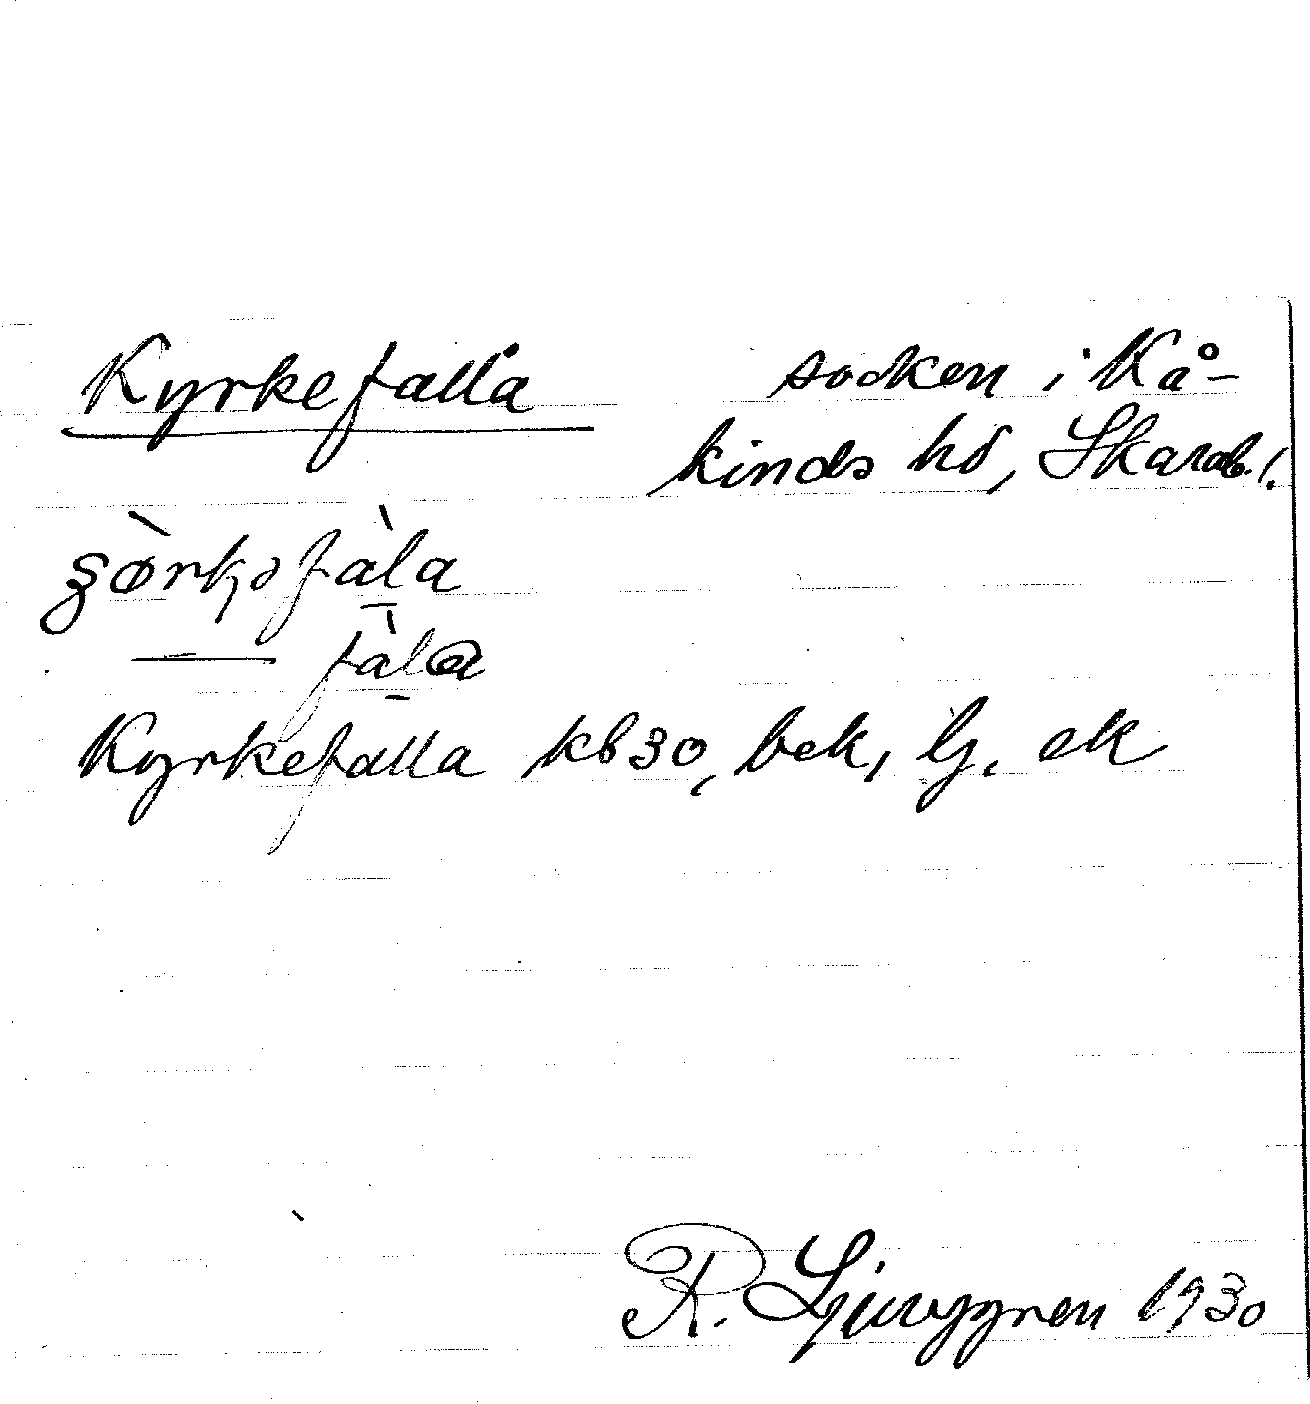 Kyrkefalla socken i Kå-
kinds hd, Skarab. l.
fàla
Kyrkefalla kb 30, bek, lj. ek
R. Ljunggren 1930